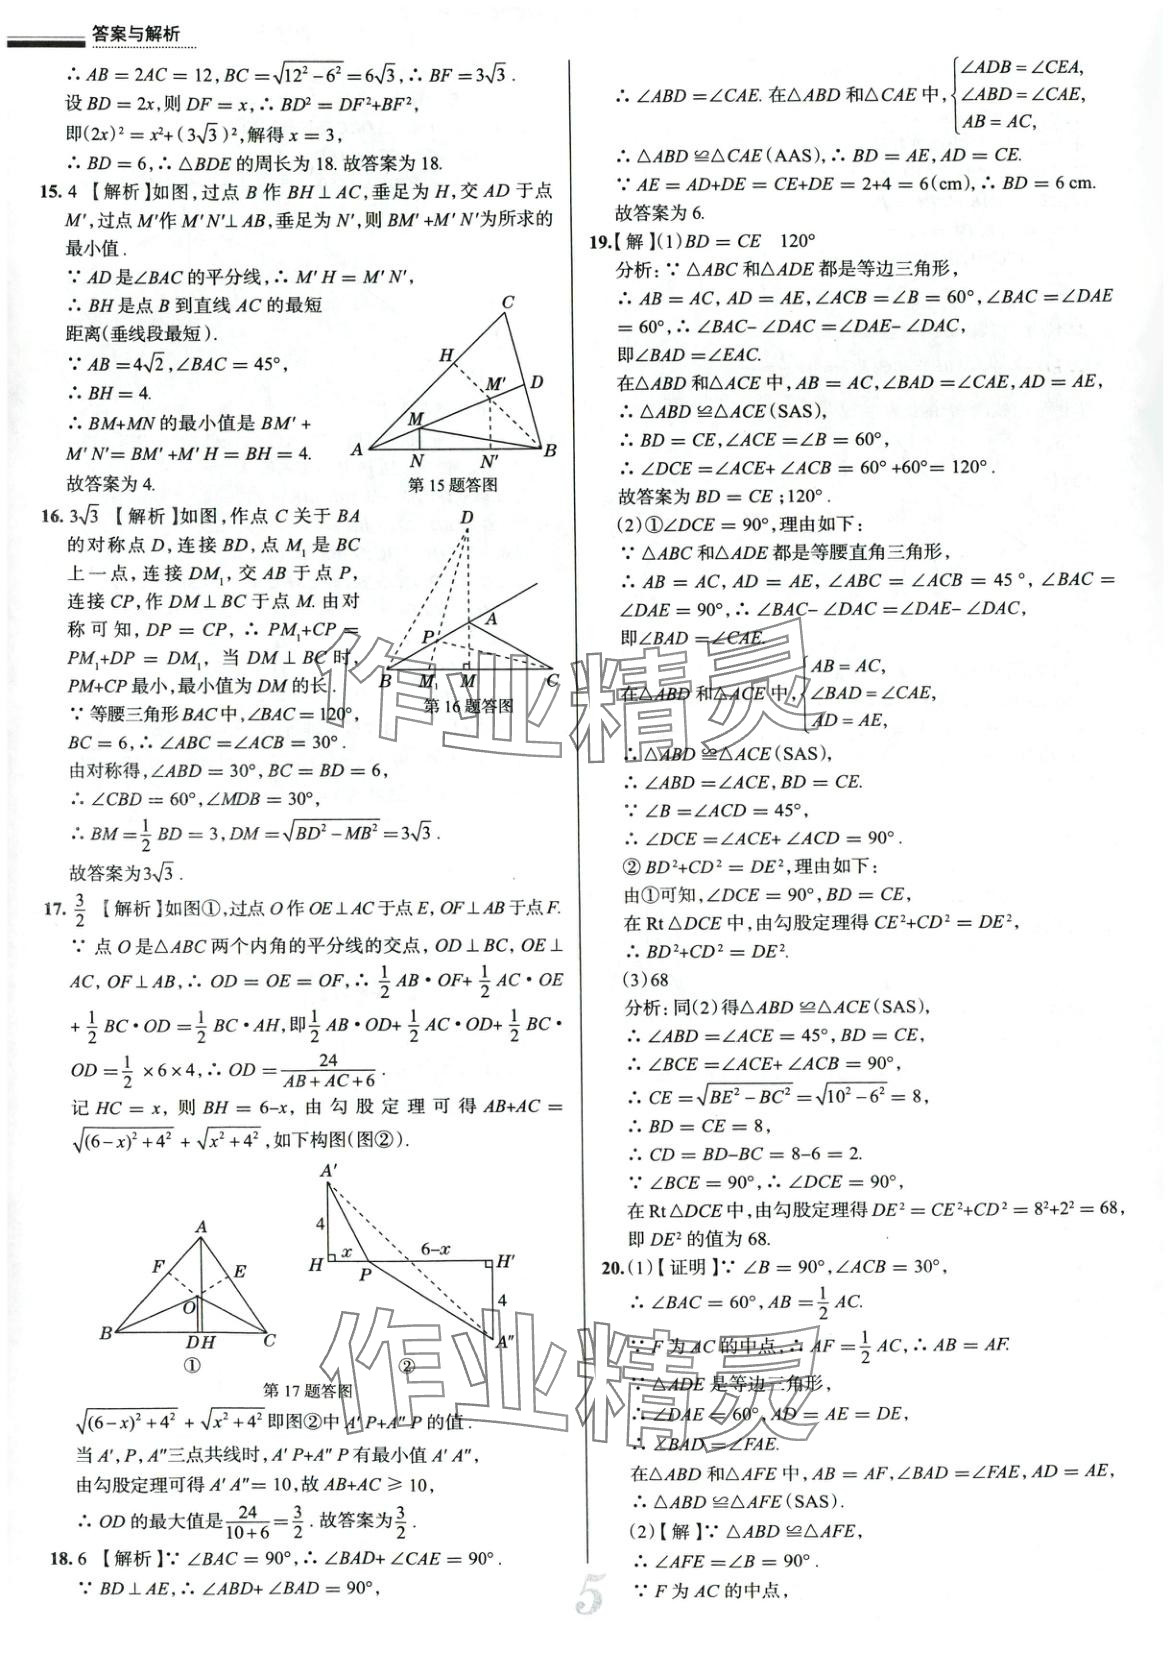 答案与解析
∴ AB = 2AC = 12, BC = √(12² − 6²) = 6√3, ∴ BF = 3√3 .
设 BD = 2x, 则 DF = x, ∴ BD² = DF²+BF²,
即(2x)² = x²+(3√3)², 解得 x = 3,
∴ BD = 6, ∴ △BDE 的周长为 18. 故答案为 18.
15. 4 【解析】如图, 过点 B 作 BH⊥AC, 垂足为 H, 交 AD 于点
M′, 过点 M′作 M′N′⊥AB, 垂足为 N′, 则 BM′+M′N′为所求的
最小值.
∵ AD 是∠BAC 的平分线, ∴ M′H = M′N′,
∴ BH 是点 B 到直线 AC 的最短
距离(垂线段最短).
∵ AB = 4√2, ∠BAC = 45°,
∴ BH = 4.
∴ BM+MN 的最小值是 BM′ +
M′N′= BM′+M′H = BH = 4.
故答案为 4.
C
H
M′
D
M
A
N
N′
B
第 15 题答图
16. 3√3 【解析】如图, 作点 C 关于 BA
的对称点 D, 连接 BD, 点 M₁ 是 BC
上一点, 连接 DM₁, 交 AB 于点 P,
连接 CP, 作 DM⊥BC 于点 M. 由对
称可知, DP = CP, ∴ PM₁+CP =
PM₁+DP = DM₁, 当 DM⊥BC 时,
PM+CP 最小, 最小值为 DM 的长.
∵ 等腰三角形 BAC 中, ∠BAC = 120°,
BC = 6, ∴ ∠ABC = ∠ACB = 30°.
由对称得, ∠ABD = 30°, BC = BD = 6,
∴ ∠CBD = 60°, ∠MDB = 30°,
∴ BM = 1/2 BD = 3, DM = √(BD² − MB²) = 3√3 .
故答案为 3√3 .
D
P
A
B
M₁
M
C
第 16 题答图
17. 3/2 【解析】如图①, 过点 O 作 OE⊥AC 于点 E, OF⊥AB 于点 F.
∵ 点 O 是△ABC 两个内角的平分线的交点, OD⊥BC, OE⊥
AC, OF⊥AB, ∴ OD = OE = OF, ∴ 1/2 AB·OF+ 1/2 AC·OE
+ 1/2 BC·OD = 1/2 BC·AH, 即 1/2 AB·OD+ 1/2 AC·OD+ 1/2 BC·
OD = 1/2 ×6×4, ∴ OD = 24/(AB+AC+6) .
记 HC = x, 则 BH = 6−x, 由勾股定理可得 AB+AC =
√((6−x)²+4²) + √(x²+4²), 如下构图(图②).
A
F
E
O
B
D H
C
①
A′
4
x
6−x
H
P
H′
4
A″
②
第 17 题答图
√((6−x)²+4²) + √(x²+4²) 即图②中 A′P+A″P 的值.
当 A′, P, A″三点共线时, A′P+A″P 有最小值 A′A″,
由勾股定理可得 A′A″= 10, 故 AB+AC ≥ 10,
∴ OD 的最大值是 24/(10+6) = 3/2 . 故答案为 3/2 .
18. 6 【解析】∵ ∠BAC = 90°, ∴ ∠BAD+ ∠CAE = 90°.
∵ BD⊥AE, ∴ ∠ABD+ ∠BAD = 90°,
∴ ∠ABD = ∠CAE. 在△ABD 和△CAE 中, { ∠ADB = ∠CEA,
∠ABD = ∠CAE,
AB = AC,
∴ △ABD ≌△CAE (AAS), ∴ BD = AE, AD = CE.
∵ AE = AD+DE = CE+DE = 2+4 = 6(cm), ∴ BD = 6 cm.
故答案为 6.
19. 【解】(1) BD = CE 120°
分析: ∵ △ABC 和△ADE 都是等边三角形,
∴ AB = AC, AD = AE, ∠ACB = ∠B = 60°, ∠BAC = ∠DAE
= 60°, ∴ ∠BAC− ∠DAC = ∠DAE− ∠DAC,
即∠BAD = ∠EAC.
在△ABD 和△ACE 中, AB = AC, ∠BAD = ∠CAE, AD = AE,
∴ △ABD ≌△ACE (SAS),
∴ BD = CE, ∠ACE = ∠B = 60°,
∴ ∠DCE = ∠ACE+ ∠ACB = 60° +60° = 120°.
故答案为 BD = CE ; 120°.
(2)①∠DCE = 90°, 理由如下:
∵ △ABC 和△ADE 都是等腰直角三角形,
∴ AB = AC, AD = AE, ∠ABC = ∠ACB = 45 °, ∠BAC =
∠DAE = 90°, ∴ ∠BAC− ∠DAC = ∠DAE− ∠DAC,
即∠BAD = ∠CAE.
在△ABD 和△ACE 中, { AB = AC,
∠BAD = ∠CAE,
AD = AE,
∴ △ABD ≌△ACE (SAS),
∴ ∠ABD = ∠ACE, BD = CE.
∵ ∠B = ∠ACD = 45°,
∴ ∠DCE = ∠ACE+ ∠ACD = 90°.
② BD²+CD² = DE², 理由如下:
由①可知, ∠DCE = 90°, BD = CE,
在 Rt△DCE 中, 由勾股定理得 CE²+CD² = DE²,
∴ BD²+CD² = DE².
(3) 68
分析: 同(2)得△ABD ≌△ACE (SAS),
∴ ∠ABD = ∠ACE = 45°, BD = CE,
∴ ∠BCE = ∠ACE+ ∠ACB = 90°,
∴ CE = √(BE² − BC²) = √(10² − 6²) = 8,
∴ BD = CE = 8,
∴ CD = BD−BC = 8−6 = 2.
∵ ∠BCE = 90°, ∴ ∠DCE = 90°,
在 Rt△DCE 中, 由勾股定理得 DE² = CE²+CD² = 8²+2² = 68,
即 DE² 的值为 68.
20. (1)【证明】∵ ∠B = 90°, ∠ACB = 30°,
∴ ∠BAC = 60°, AB = 1/2 AC.
∵ F 为 AC 的中点, ∴ AF = 1/2 AC, ∴ AB = AF.
∵ △ADE 是等边三角形,
∴ ∠DAE = 60°, AD = AE = DE,
∴ ∠BAD = ∠FAE.
在△ABD 和△AFE 中, AB = AF, ∠BAD = ∠FAE, AD = AE,
∴ △ABD ≌△AFE (SAS).
(2)【解】∵ △ABD ≌△AFE,
∴ ∠AFE = ∠B = 90°.
∵ F 为 AC 的中点,
5
作业精灵
作业精灵